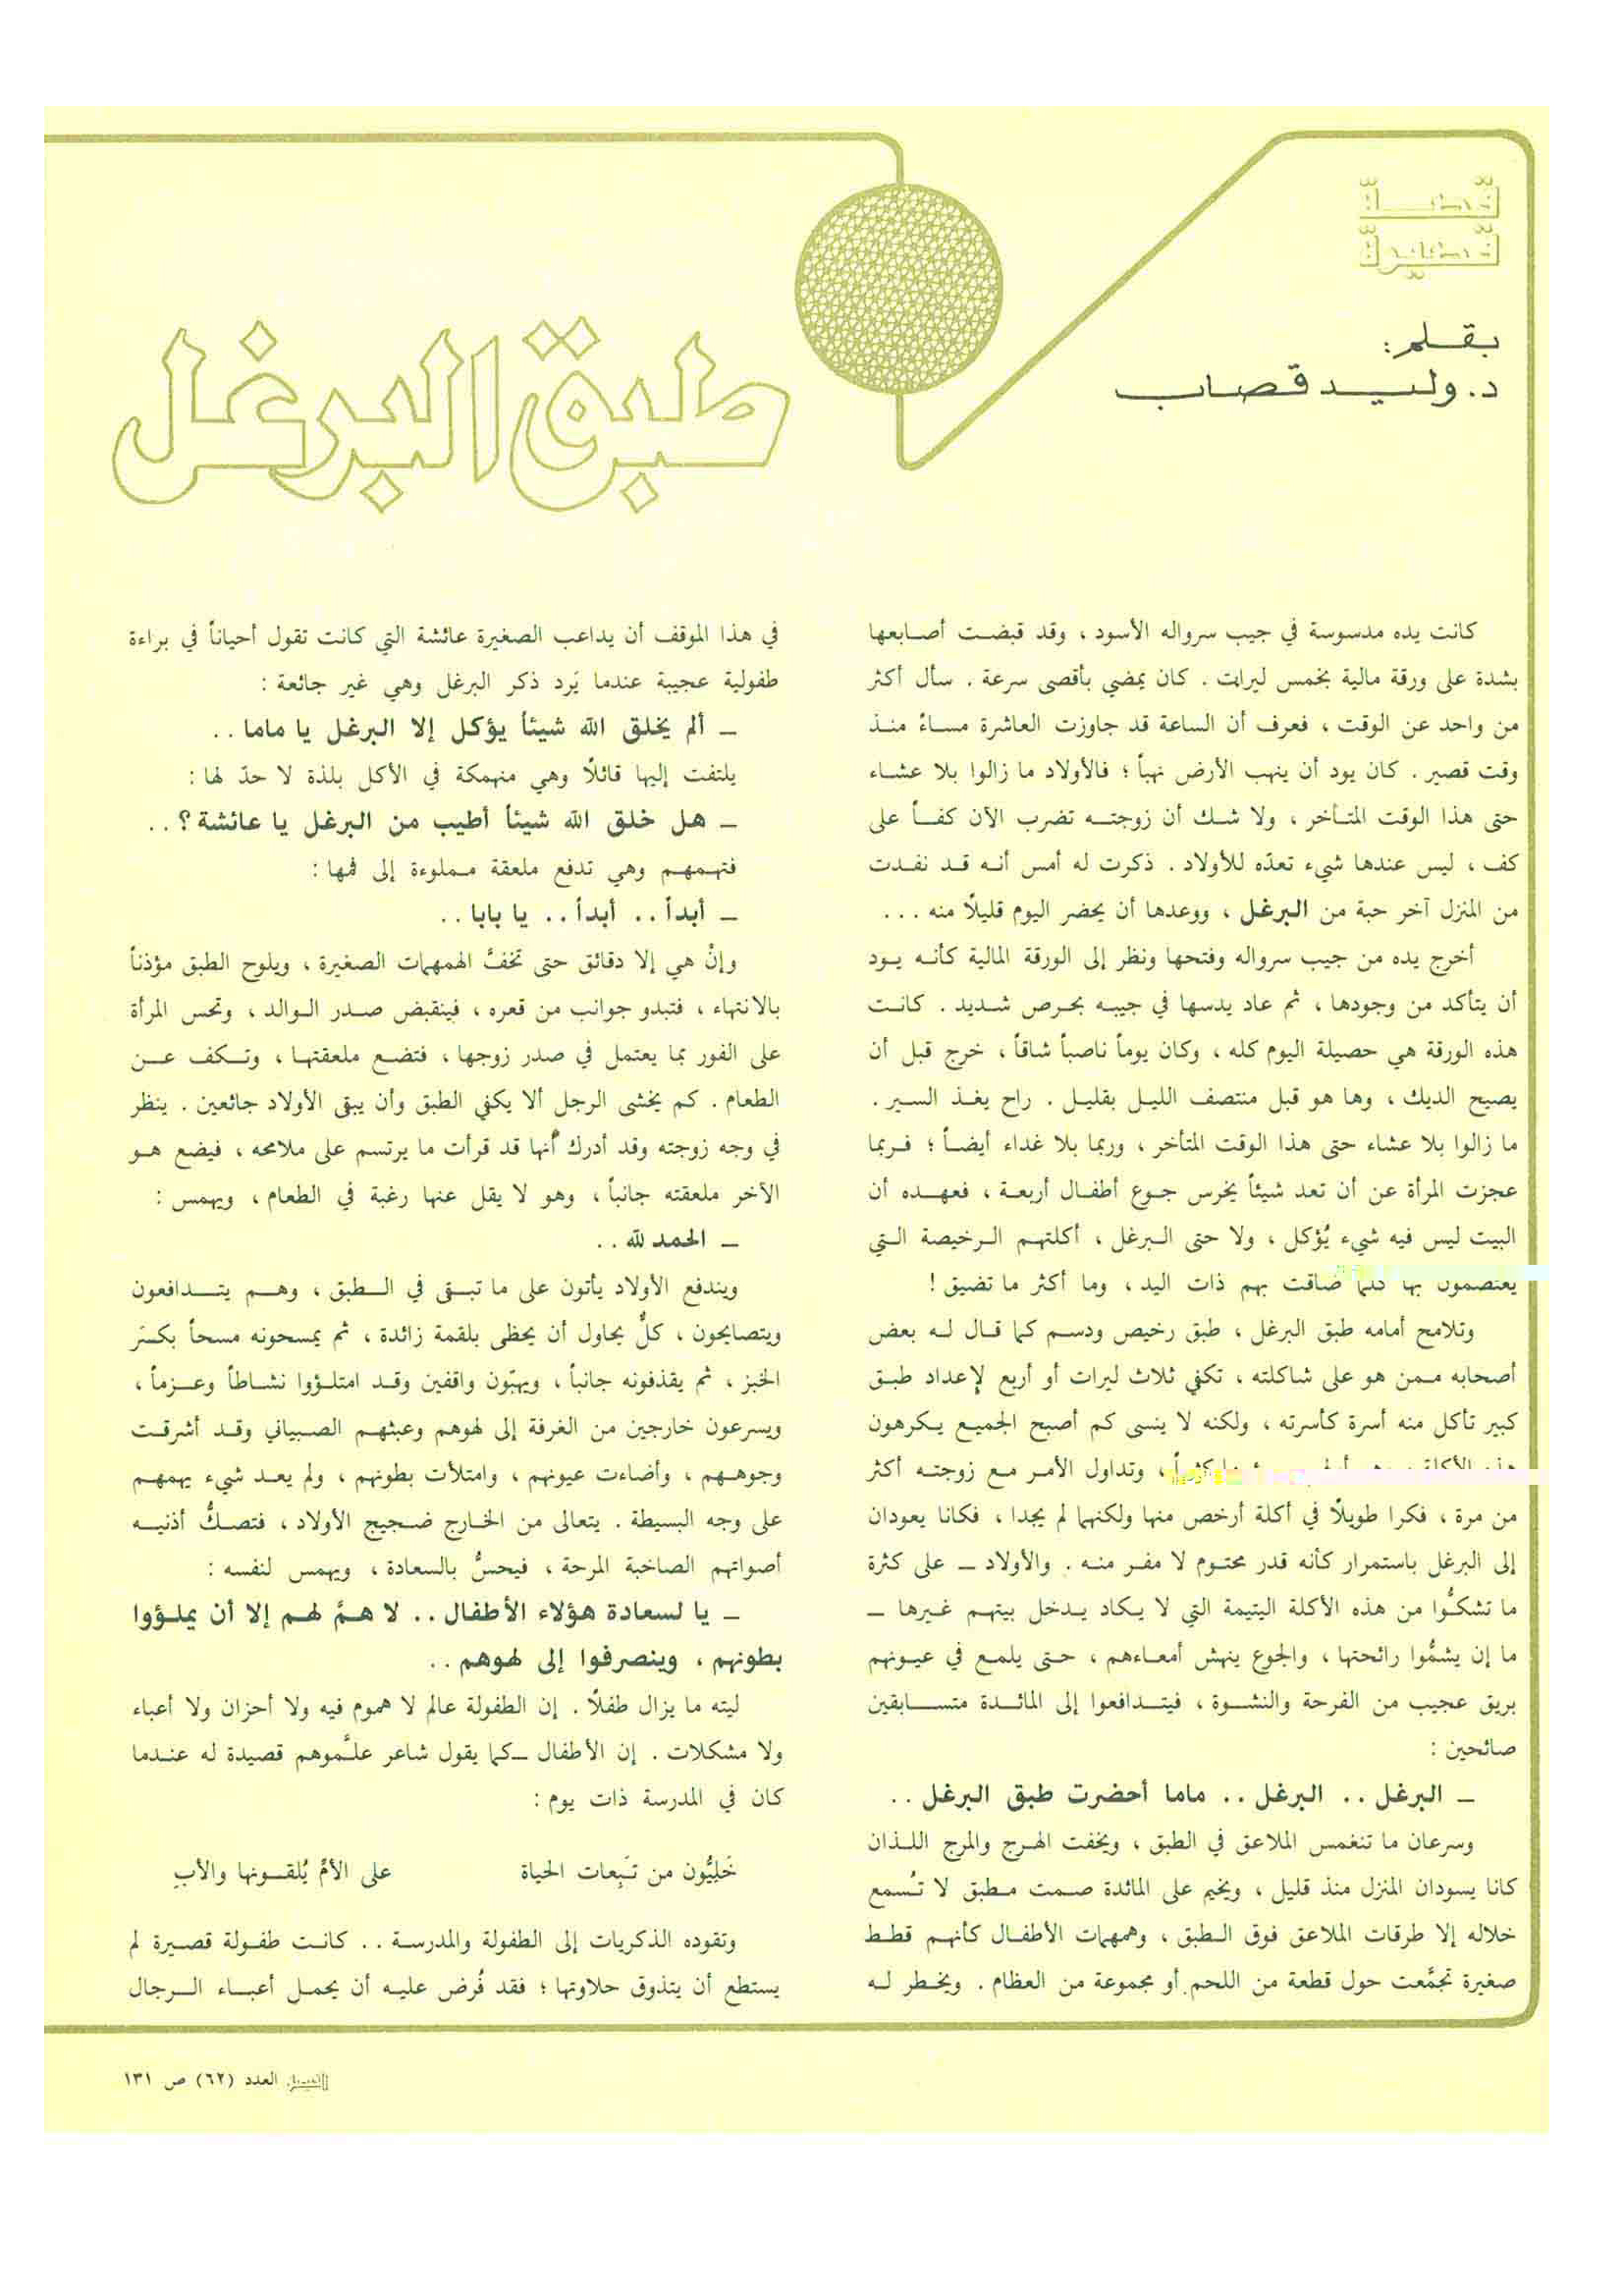 قصة
قصيرة
بقلم:
د. وليد قصاب
طبق البرغل
كانت يده مدسوسة في جيب سرواله الأسود ، وقد قبضت أصابعها
بشدة على ورقة مالية بخمس ليرات . كان يمضي بأقصى سرعة . سأل أكثر
من واحد عن الوقت ، فعرف أن الساعة قد جاوزت العاشرة مساءً منذ
وقت قصير . كان يود أن ينهب الأرض نهباً ؛ فالأولاد ما زالوا بلا عشاء
حتى هذا الوقت المتأخر ، ولا شك أن زوجته تضرب الآن كفاً على
كف ، ليس عندها شيء تعدّه للأولاد . ذكرت له أمس أنه قد نفدت
من المنزل آخر حبة من البرغل ، ووعدها أن يحضر اليوم قليلاً منه ...
أخرج يده من جيب سرواله وفتحها ونظر إلى الورقة المالية كأنه يود
أن يتأكد من وجودها ، ثم عاد يدسها في جيبه بحرص شديد . كانت
هذه الورقة هي حصيلة اليوم كله ، وكان يوماً ناصباً شاقاً ، خرج قبل أن
يصيح الديك ، وها هو قبل منتصف الليل بقليل . راح يغذ السير .
ما زالوا بلا عشاء حتى هذا الوقت المتأخر ، وربما بلا غداء أيضاً ؛ فربما
عجزت المرأة عن أن تعد شيئاً يخرس جوع أطفال أربعة ، فعهده أن
البيت ليس فيه شيء يُؤكل ، ولا حتى البرغل ، أكلتهم الرخيصة التي
يعتصمون بها كلما ضاقت بهم ذات اليد ، وما أكثر ما تضيق !
وتلامح أمامه طبق البرغل ، طبق رخيص ودسم كما قال له بعض
أصحابه ممن هو على شاكلته ، تكفي ثلاث ليرات أو أربع لإعداد طبق
كبير تأكل منه أسرة كأسرته ، ولكنه لا ينسى كم أصبح الجميع يكرهون
هذه الأكلة كثيراً ، وتداول الأمر مع زوجته أكثر
من مرة ، فكرا طويلاً في أكلة أرخص منها ولكنهما لم يجدا ، فكانا يعودان
إلى البرغل باستمرار كأنه قدر محتوم لا مفر منه . والأولاد ــ على كثرة
ما تشكُّوا من هذه الأكلة اليتيمة التي لا يكاد يدخل بيتهم غيرها ــ
ما إن يشمُّوا رائحتها ، والجوع ينهش أمعاءهم ، حتى يلمع في عيونهم
بريق عجيب من الفرحة والنشوة ، فيتدافعوا إلى المائدة متسابقين
صائحين :
ــ البرغل .. البرغل .. ماما أحضرت طبق البرغل ..
وسرعان ما تنغمس الملاعق في الطبق ، ويخفت الهرج والمرج اللذان
كانا يسودان المنزل منذ قليل ، ويخيم على المائدة صمت مطبق لا تُسمع
خلاله إلا طرقات الملاعق فوق الطبق ، وهمهمات الأطفال كأنهم قطط
صغيرة تجمَّعت حول قطعة من اللحم أو مجموعة من العظام . ويخطر له
في هذا الموقف أن يداعب الصغيرة عائشة التي كانت تقول أحياناً في براءة
طفولية عجيبة عندما يَرد ذكر البرغل وهي غير جائعة :
ــ ألم يخلق الله شيئاً يؤكل إلا البرغل يا ماما ..
يلتفت إليها قائلاً وهي منهمكة في الأكل بلذة لا حدّ لها :
ــ هل خلق الله شيئاً أطيب من البرغل يا عائشة ؟ ..
فتهمهم وهي تدفع ملعقة مملوءة إلى فمها :
ــ أبداً .. أبداً .. يا بابا ..
وإنْ هي إلا دقائق حتى تخفَّ الهمهمات الصغيرة ، ويلوح الطبق مؤذناً
بالانتهاء ، فتبدو جوانب من قعره ، فينقبض صدر الوالد ، وتحس المرأة
على الفور بما يعتمل في صدر زوجها ، فتضع ملعقتها ، وتكف عن
الطعام . كم يخشى الرجل ألا يكفي الطبق وأن يبقى الأولاد جائعين . ينظر
في وجه زوجته وقد أدرك أنها قد قرأت ما يرتسم على ملامحه ، فيضع هو
الآخر ملعقته جانباً ، وهو لا يقل عنها رغبة في الطعام ، ويهمس :
ــ الحمد لله ..
ويندفع الأولاد يأتون على ما تبقى في الطبق ، وهم يتدافعون
ويتصايحون ، كلٌّ يحاول أن يحظى بلقمة زائدة ، ثم يمسحونه مسحاً بكسَر
الخبز ، ثم يقذفونه جانباً ، ويهبّون واقفين وقد امتلؤوا نشاطاً وعزماً ،
ويسرعون خارجين من الغرفة إلى لهوهم وعبثهم الصبياني وقد أشرقت
وجوههم ، وأضاءت عيونهم ، وامتلأت بطونهم ، ولم يعد شيء يهمهم
على وجه البسيطة . يتعالى من الخارج ضجيج الأولاد ، فتصكُّ أذنيه
أصواتهم الصاخبة المرحة ، فيحسُّ بالسعادة ، ويهمس لنفسه :
ــ يا لسعادة هؤلاء الأطفال .. لا همَّ لهم إلا أن يملؤوا
بطونهم ، وينصرفوا إلى لهوهم ..
ليته ما يزال طفلاً . إن الطفولة عالم لا هموم فيه ولا أحزان ولا أعباء
ولا مشكلات . إن الأطفال ــ كما يقول شاعر علَّموهم قصيدة له عندما
كان في المدرسة ذات يوم :
خَلِيُّون من تَبِعات الحياة على الأمِّ يُلقونها والأبِ
وتقوده الذكريات إلى الطفولة والمدرسة .. كانت طفولة قصيرة لم
يستطع أن يتذوق حلاوتها ؛ فقد فُرض عليه أن يحمل أعباء الرجال
الفيصل العدد (٦٢) ص ١٣١